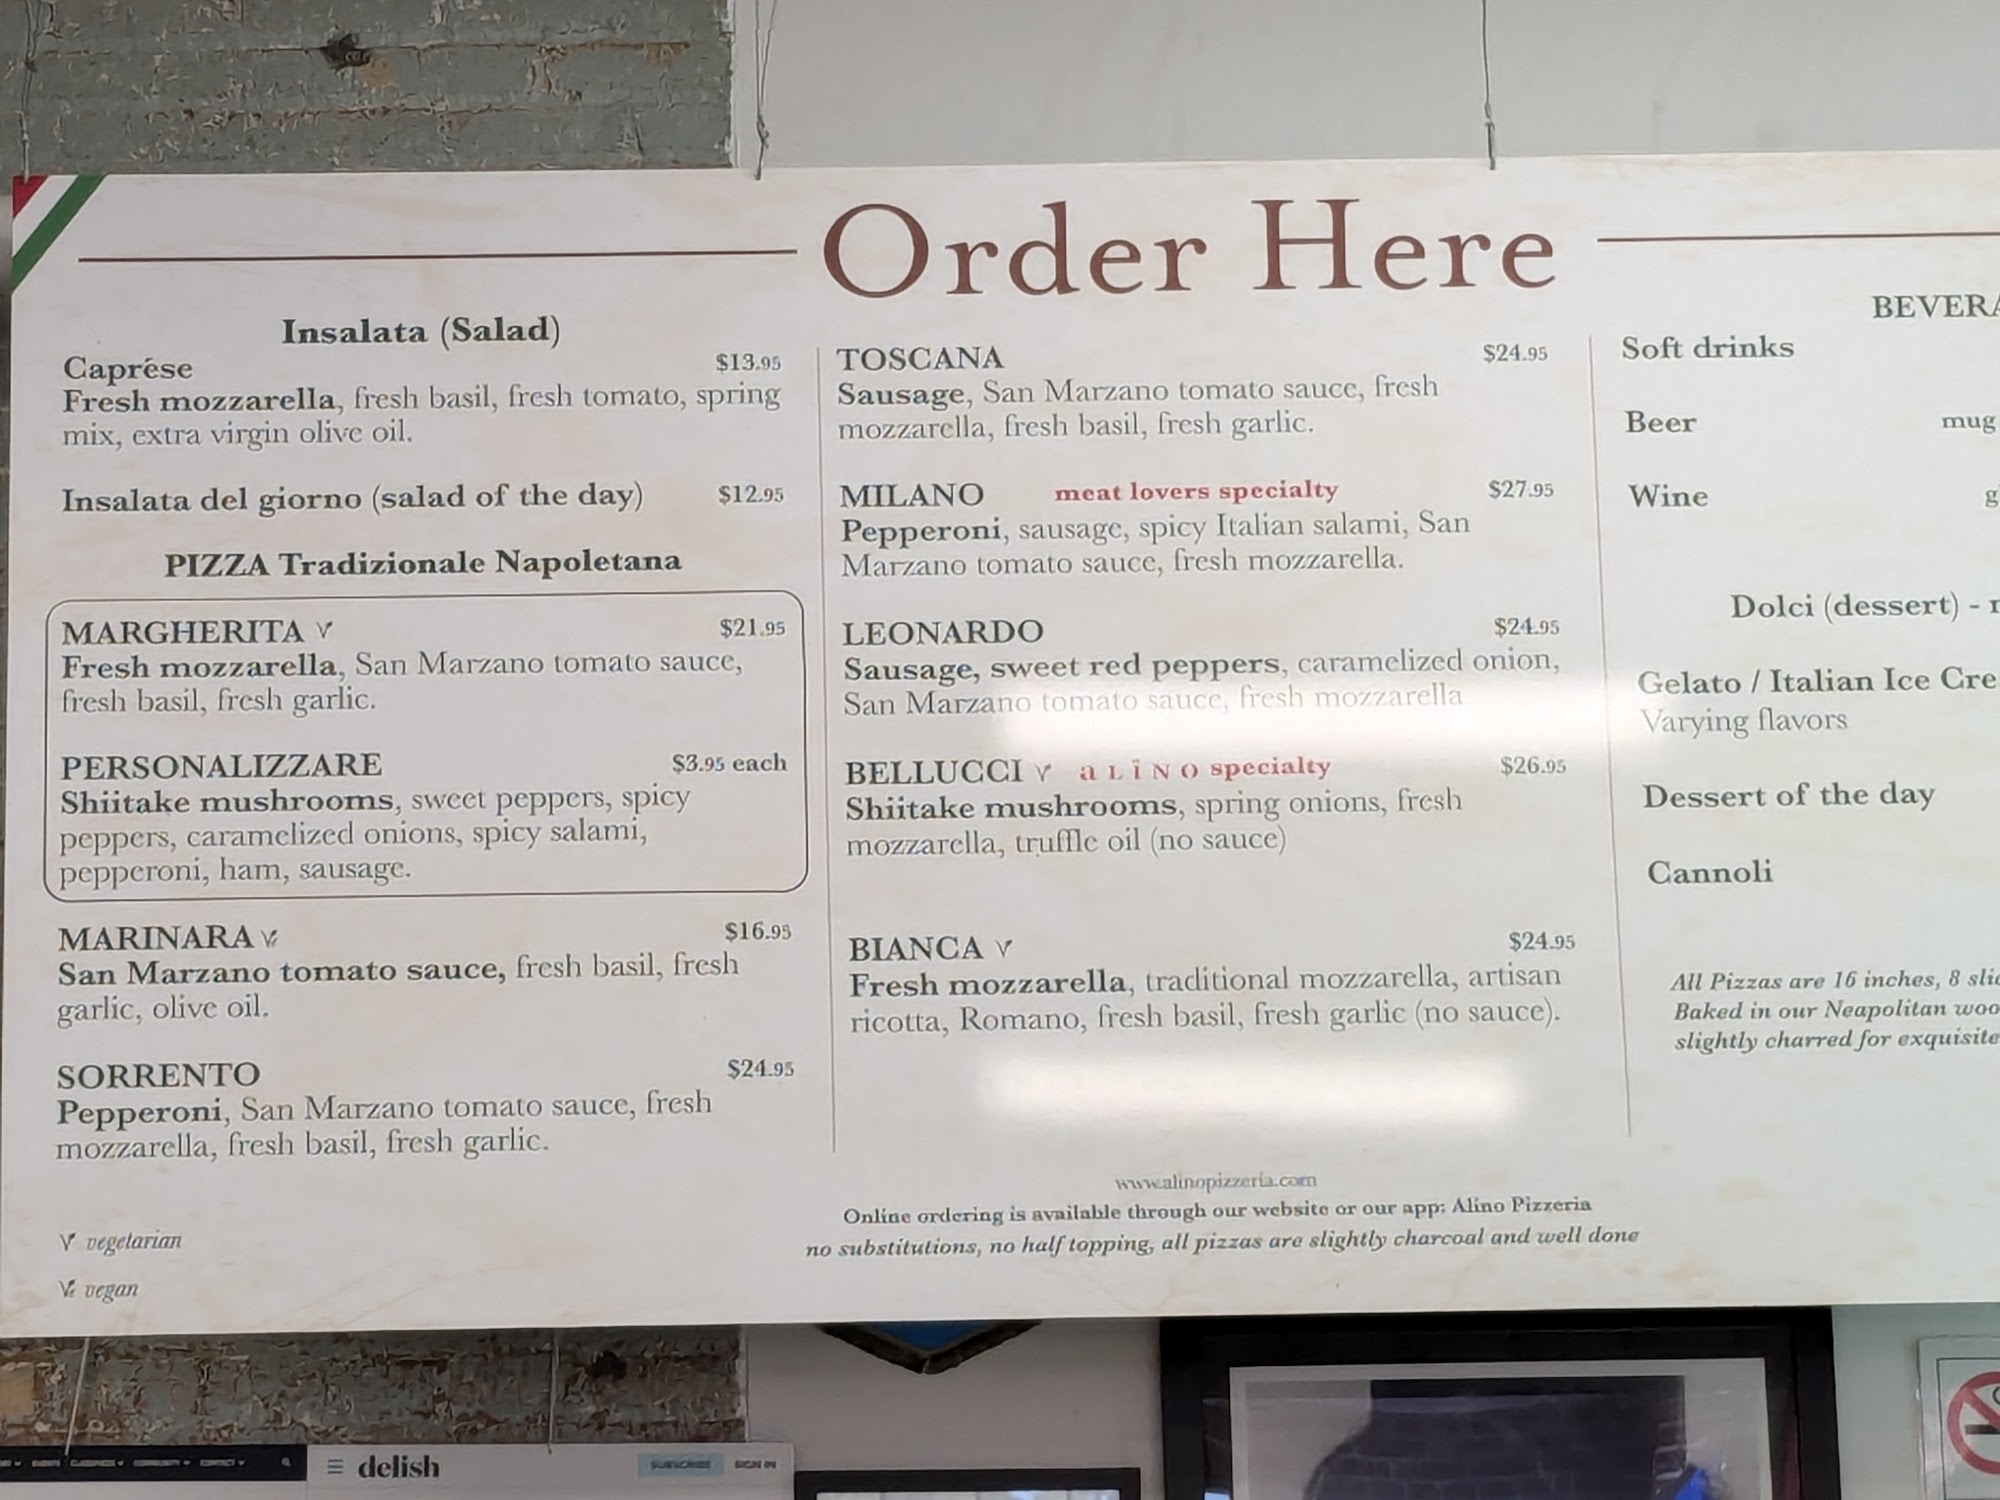 Order Here
Insalata (Salad)
Caprése $13.95
Fresh mozzarella, fresh basil, fresh tomato, spring
mix, extra virgin olive oil.
Insalata del giorno (salad of the day) $12.95
PIZZA Tradizionale Napoletana
MARGHERITA V $21.95
Fresh mozzarella, San Marzano tomato sauce,
fresh basil, fresh garlic.
PERSONALIZZARE $3.95 each
Shiitake mushrooms, sweet peppers, spicy
peppers, caramelized onions, spicy salami,
pepperoni, ham, sausage.
MARINARA Ve $16.95
San Marzano tomato sauce, fresh basil, fresh
garlic, olive oil.
SORRENTO $24.95
Pepperoni, San Marzano tomato sauce, fresh
mozzarella, fresh basil, fresh garlic.
V vegetarian
Ve vegan
TOSCANA $24.95
Sausage, San Marzano tomato sauce, fresh
mozzarella, fresh basil, fresh garlic.
MILANO meat lovers specialty $27.95
Pepperoni, sausage, spicy Italian salami, San
Marzano tomato sauce, fresh mozzarella.
LEONARDO $24.95
Sausage, sweet red peppers, caramelized onion,
San Marzano tomato sauce, fresh mozzarella
BELLUCCI V aLiNO specialty $26.95
Shiitake mushrooms, spring onions, fresh
mozzarella, truffle oil (no sauce)
BIANCA V $24.95
Fresh mozzarella, traditional mozzarella, artisan
ricotta, Romano, fresh basil, fresh garlic (no sauce).
www.alinopizzeria.com
Online ordering is available through our website or our app: Alino Pizzeria
no substitutions, no half topping, all pizzas are slightly charcoal and well done
BEVERA
Soft drinks
Beer mug
Wine g
Dolci (dessert) -
Gelato / Italian Ice Cre
Varying flavors
Dessert of the day
Cannoli
All Pizzas are 16 inches, 8 slic
Baked in our Neapolitan woo
slightly charred for exquisite
EVENTS CLASSIFIEDS COMMUNITY CONTACT
delish SUBSCRIBE SIGN IN